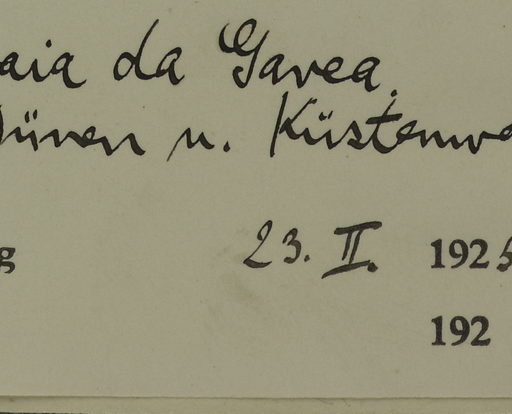 aia da Gavea.
Dünen u. Küstenwa
g 23. II. 1925
192